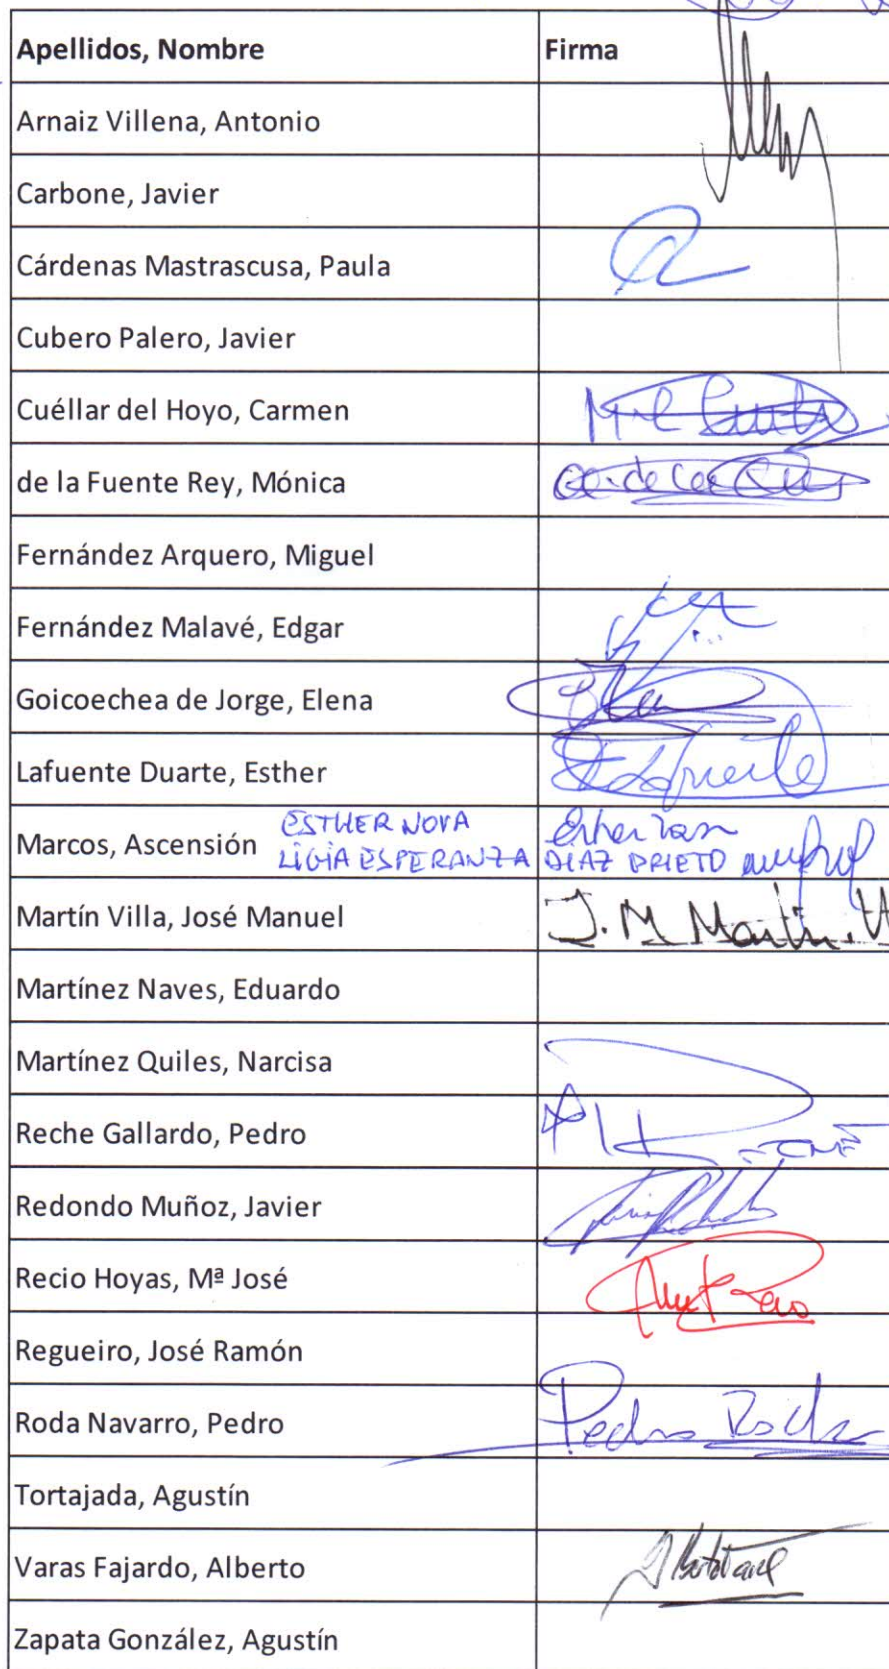 Apellidos, Nombre Firma
Arnaiz Villena, Antonio
Carbone, Javier
Cárdenas Mastrascusa, Paula
Cubero Palero, Javier
Cuéllar del Hoyo, Carmen
de la Fuente Rey, Mónica
Fernández Arquero, Miguel
Fernández Malavé, Edgar
Goicoechea de Jorge, Elena
Lafuente Duarte, Esther
ESTHER NOVA
Marcos, Ascensión LIGIA ESPERANZA DIAZ PRIETO
Martín Villa, José Manuel J. M Martín. V
Martínez Naves, Eduardo
Martínez Quiles, Narcisa
Reche Gallardo, Pedro
Redondo Muñoz, Javier
Recio Hoyas, Mª José
Regueiro, José Ramón
Roda Navarro, Pedro Pedro Roda
Tortajada, Agustín
Varas Fajardo, Alberto
Zapata González, Agustín